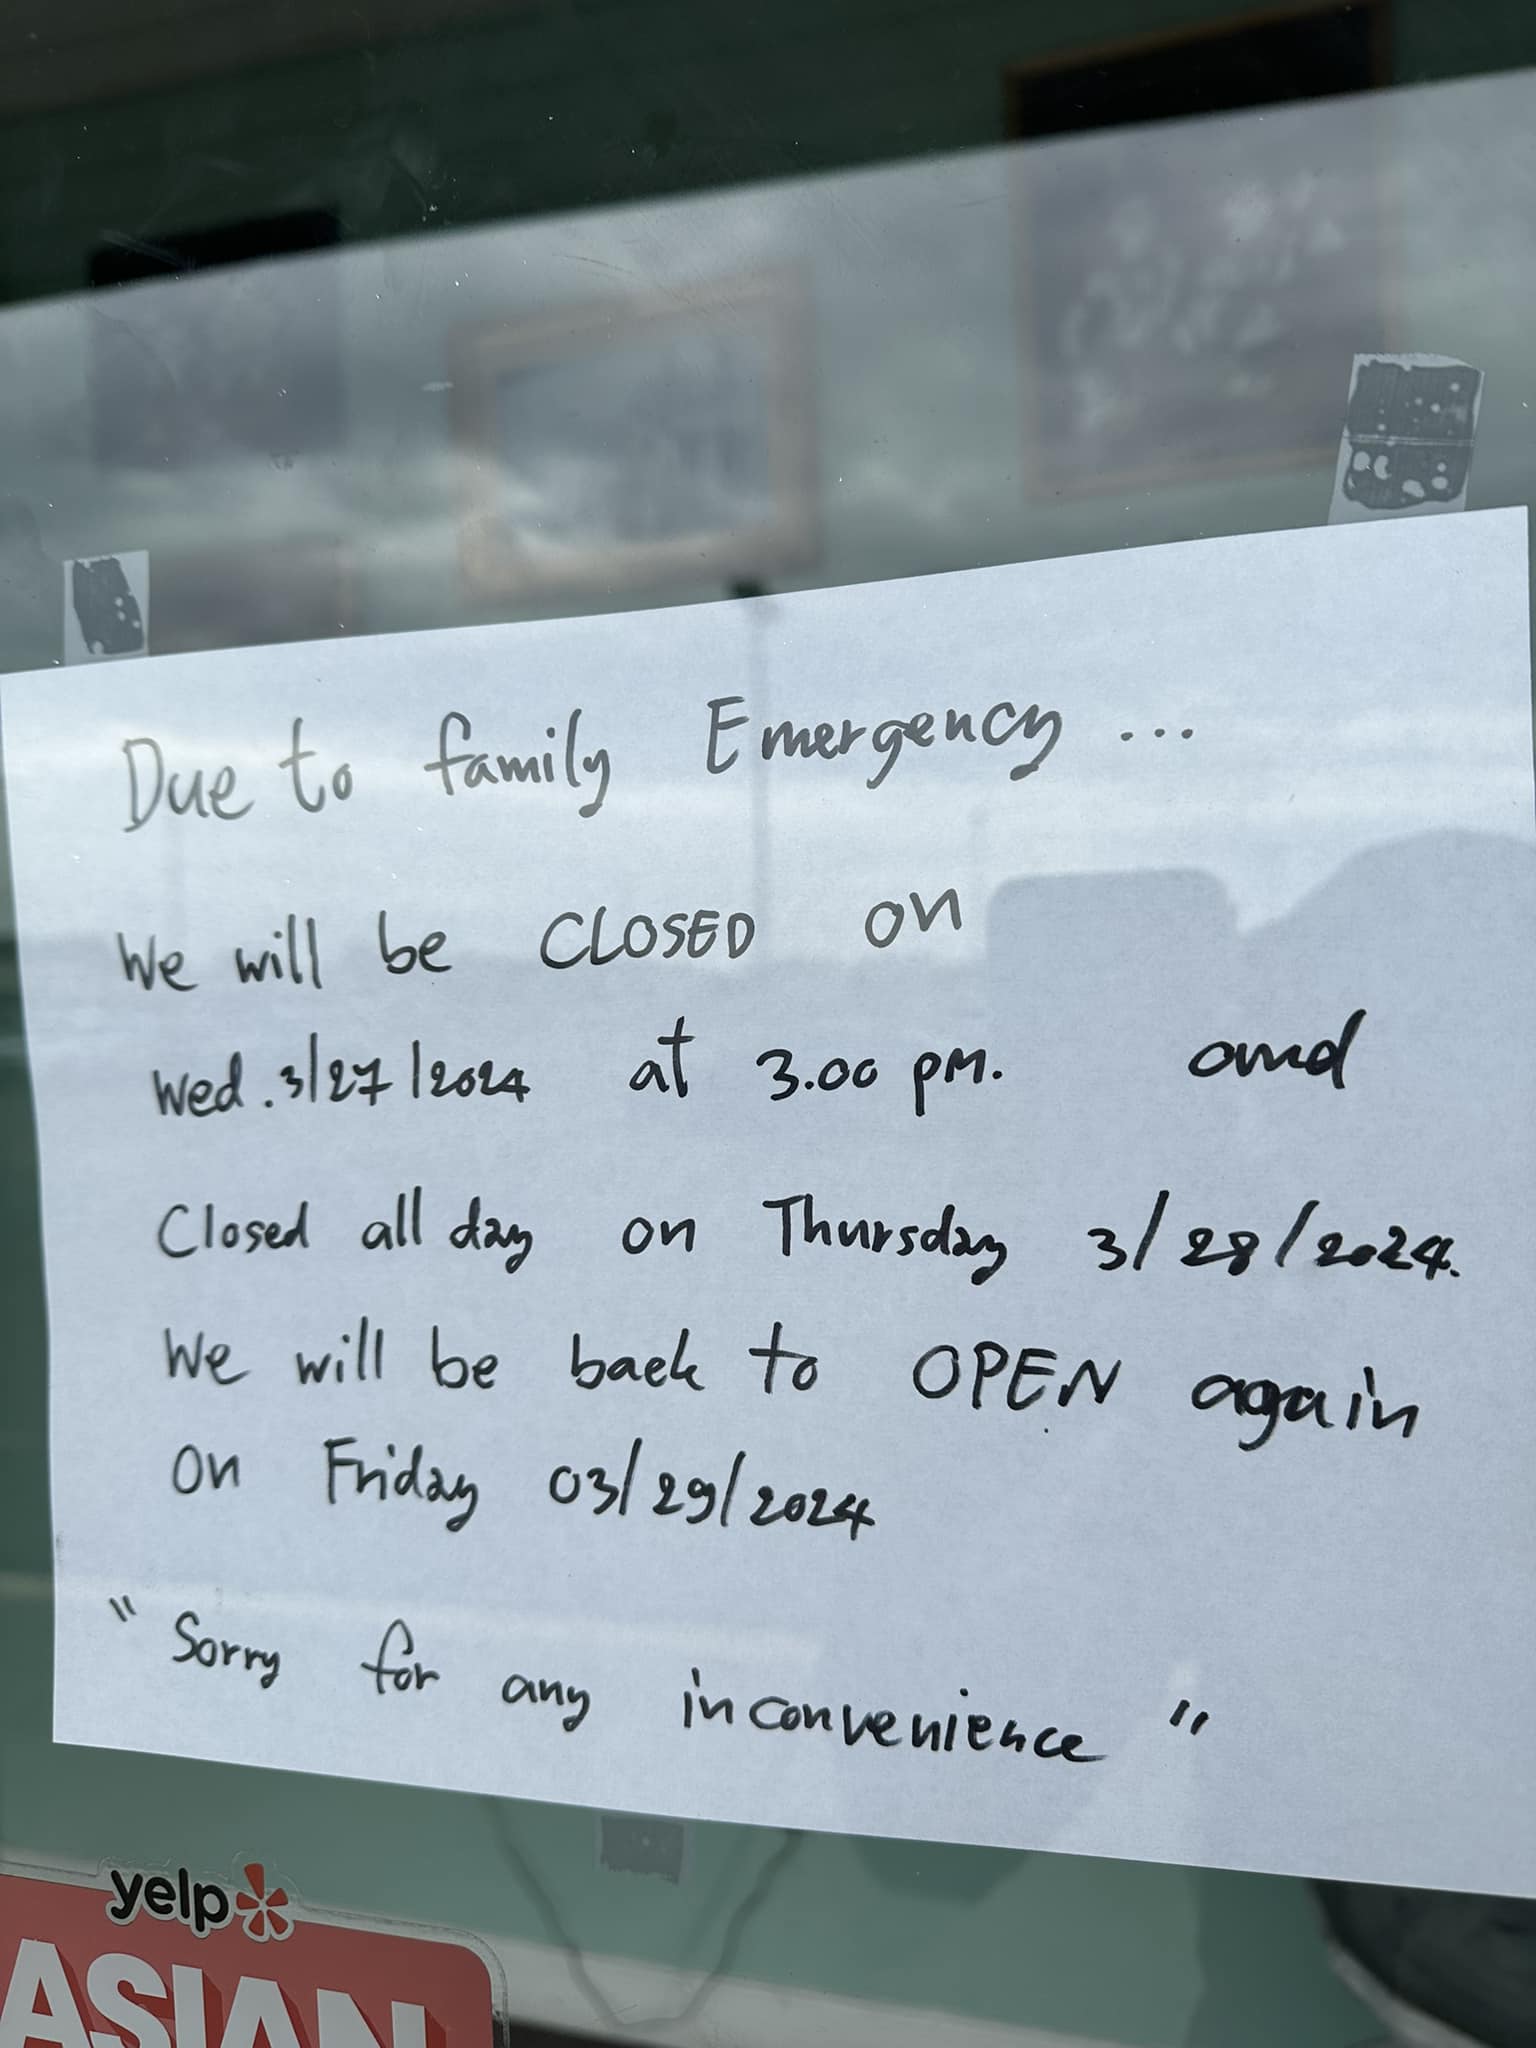 Due to family Emergency ...
We will be CLOSED on
Wed. 3/27/2024 at 3.00 pm. and
Closed all day on Thursday 3/28/2024.
We will be back to OPEN again
on Friday 03/29/2024
"Sorry for any inconvenience"
yelp
ASIAN